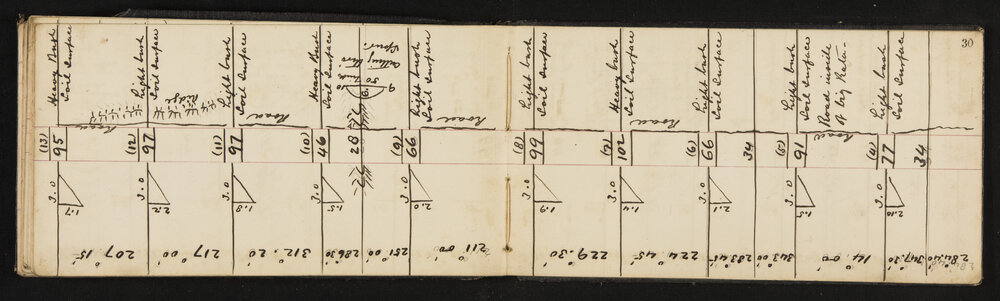 30
(13)
95
Heavy Bush
Soil Surface
3.0
1.7
207° 15'
Road
(12)
97
Light bush
Soil Surface
3.0
2.2
217° 00'
Ridge
(11)
97
Light bush
Soil Surface
3.0
1.8
312° 20'
Road
(10)
46
Heavy Bush
Soil Surface
3.0
1.5
286° 30'
28
251° 00'
Spur
(9)
66
Light bush
Soil Surface
3.0
2.0
211° 00'
Road
(8)
99
Light bush
Soil Surface
3.0
1.9
229° 30'
(7)
102
Heavy bush
Soil Surface
3.0
1.4
224° 45'
Road
(6)
66
Light bush
Soil Surface
3.0
2.1
283° 45'
34
343° 00'
(5)
91
Light bush
Soil Surface
Road inside
3.0
1.5
14° 00'
Road
(4)
77
Light bush
Soil Surface
3.0
2.10
347° 30'
34
284° 40'